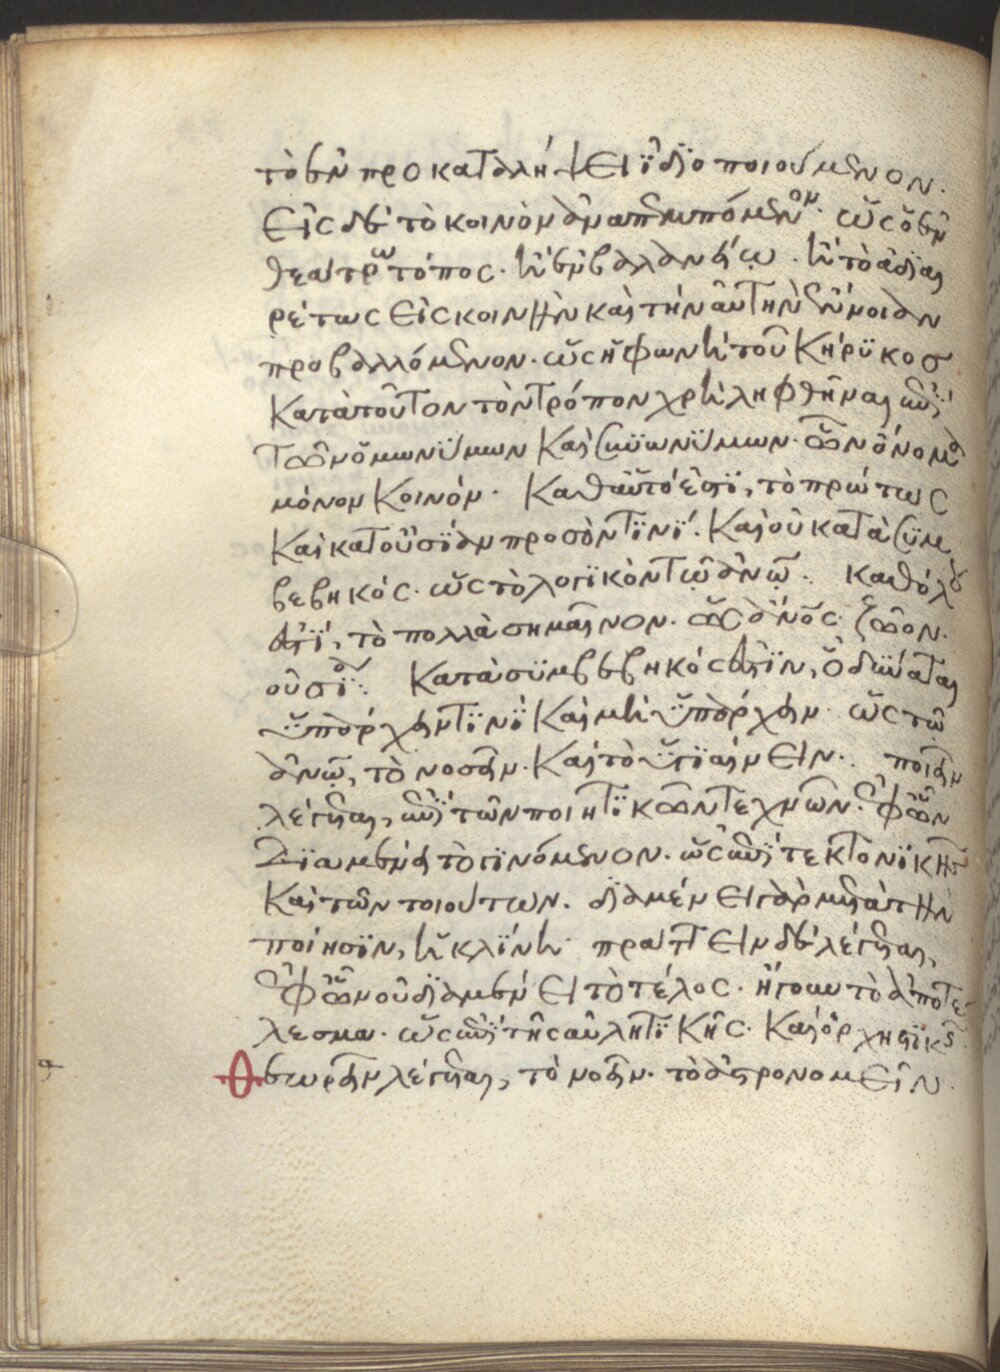 τὸ ἐν προκαταλήψει ἰδιοποιούμενον·
εἰς δὲ τὸ κοινὸν ἀναπεμπόμενον· ὡς ὁ ἐν
θεάτρω τόπος· ἢ ἐν βαλανείω· ἢ τὸ ἀδιαι
ρέτως εἰς κοινὴν καὶ τὴν αὐτὴν ἔννοιαν
προβαλλόμενον· ὡς ἡ φωνὴ τοῦ κήρυκος
κατὰ τοῦτον τὸν τρόπον χρὴ ληφθῆναι ἐπὶ
τῶν ὁμωνύμων καὶ συνωνύμων· ὧν ὄνομα
μόνον κοινόν· καθαυτό ἐστι, τὸ πρώτως
καὶ κατ οὐσίαν προσόν τινί· καὶ οὐ κατὰ συμ
βεβηκός· ὡς τὸ λογικὸν τῷ ἀνω· καθόλου
ἐστί, τὸ πολλὰ σημαῖνον· ὡς ἄνος· ζῶον·
οὐσία· κατὰ συμβεβηκός ἐστιν, ὃ δύναται
ὑπάρχειν τινὶ καὶ μὴ ὑπάρχειν· ὡς τῶ
ἀνω, τὸ νοσεῖν· καὶ τὸ ὑγιαίνειν· ποιεῖν
λέγεται, ἐπὶ τῶν ποιητικῶν τεχνῶν· ἐφ ὧν
διαμένει τὸ γινόμενον· ὡς ἐπὶ τεκτονικῆς
καὶ τῶν τοιούτων· διαμένει γὰρ μετὰ τὴν
ποίησιν, ἡ κλίνη· πράττειν δὲ λέγεται,
ἐφ ὧν οὐ διαμένει τὸ τέλος· ἤγουν τὸ ἀποτέ
λεσμα· ὡς ἐπὶ τῆς αὐλητικῆς· καὶ ὀρχηστικῆς·
Θεωρεῖν λέγεται, τὸ νοεῖν· τὸ ἀστρονομεῖν·